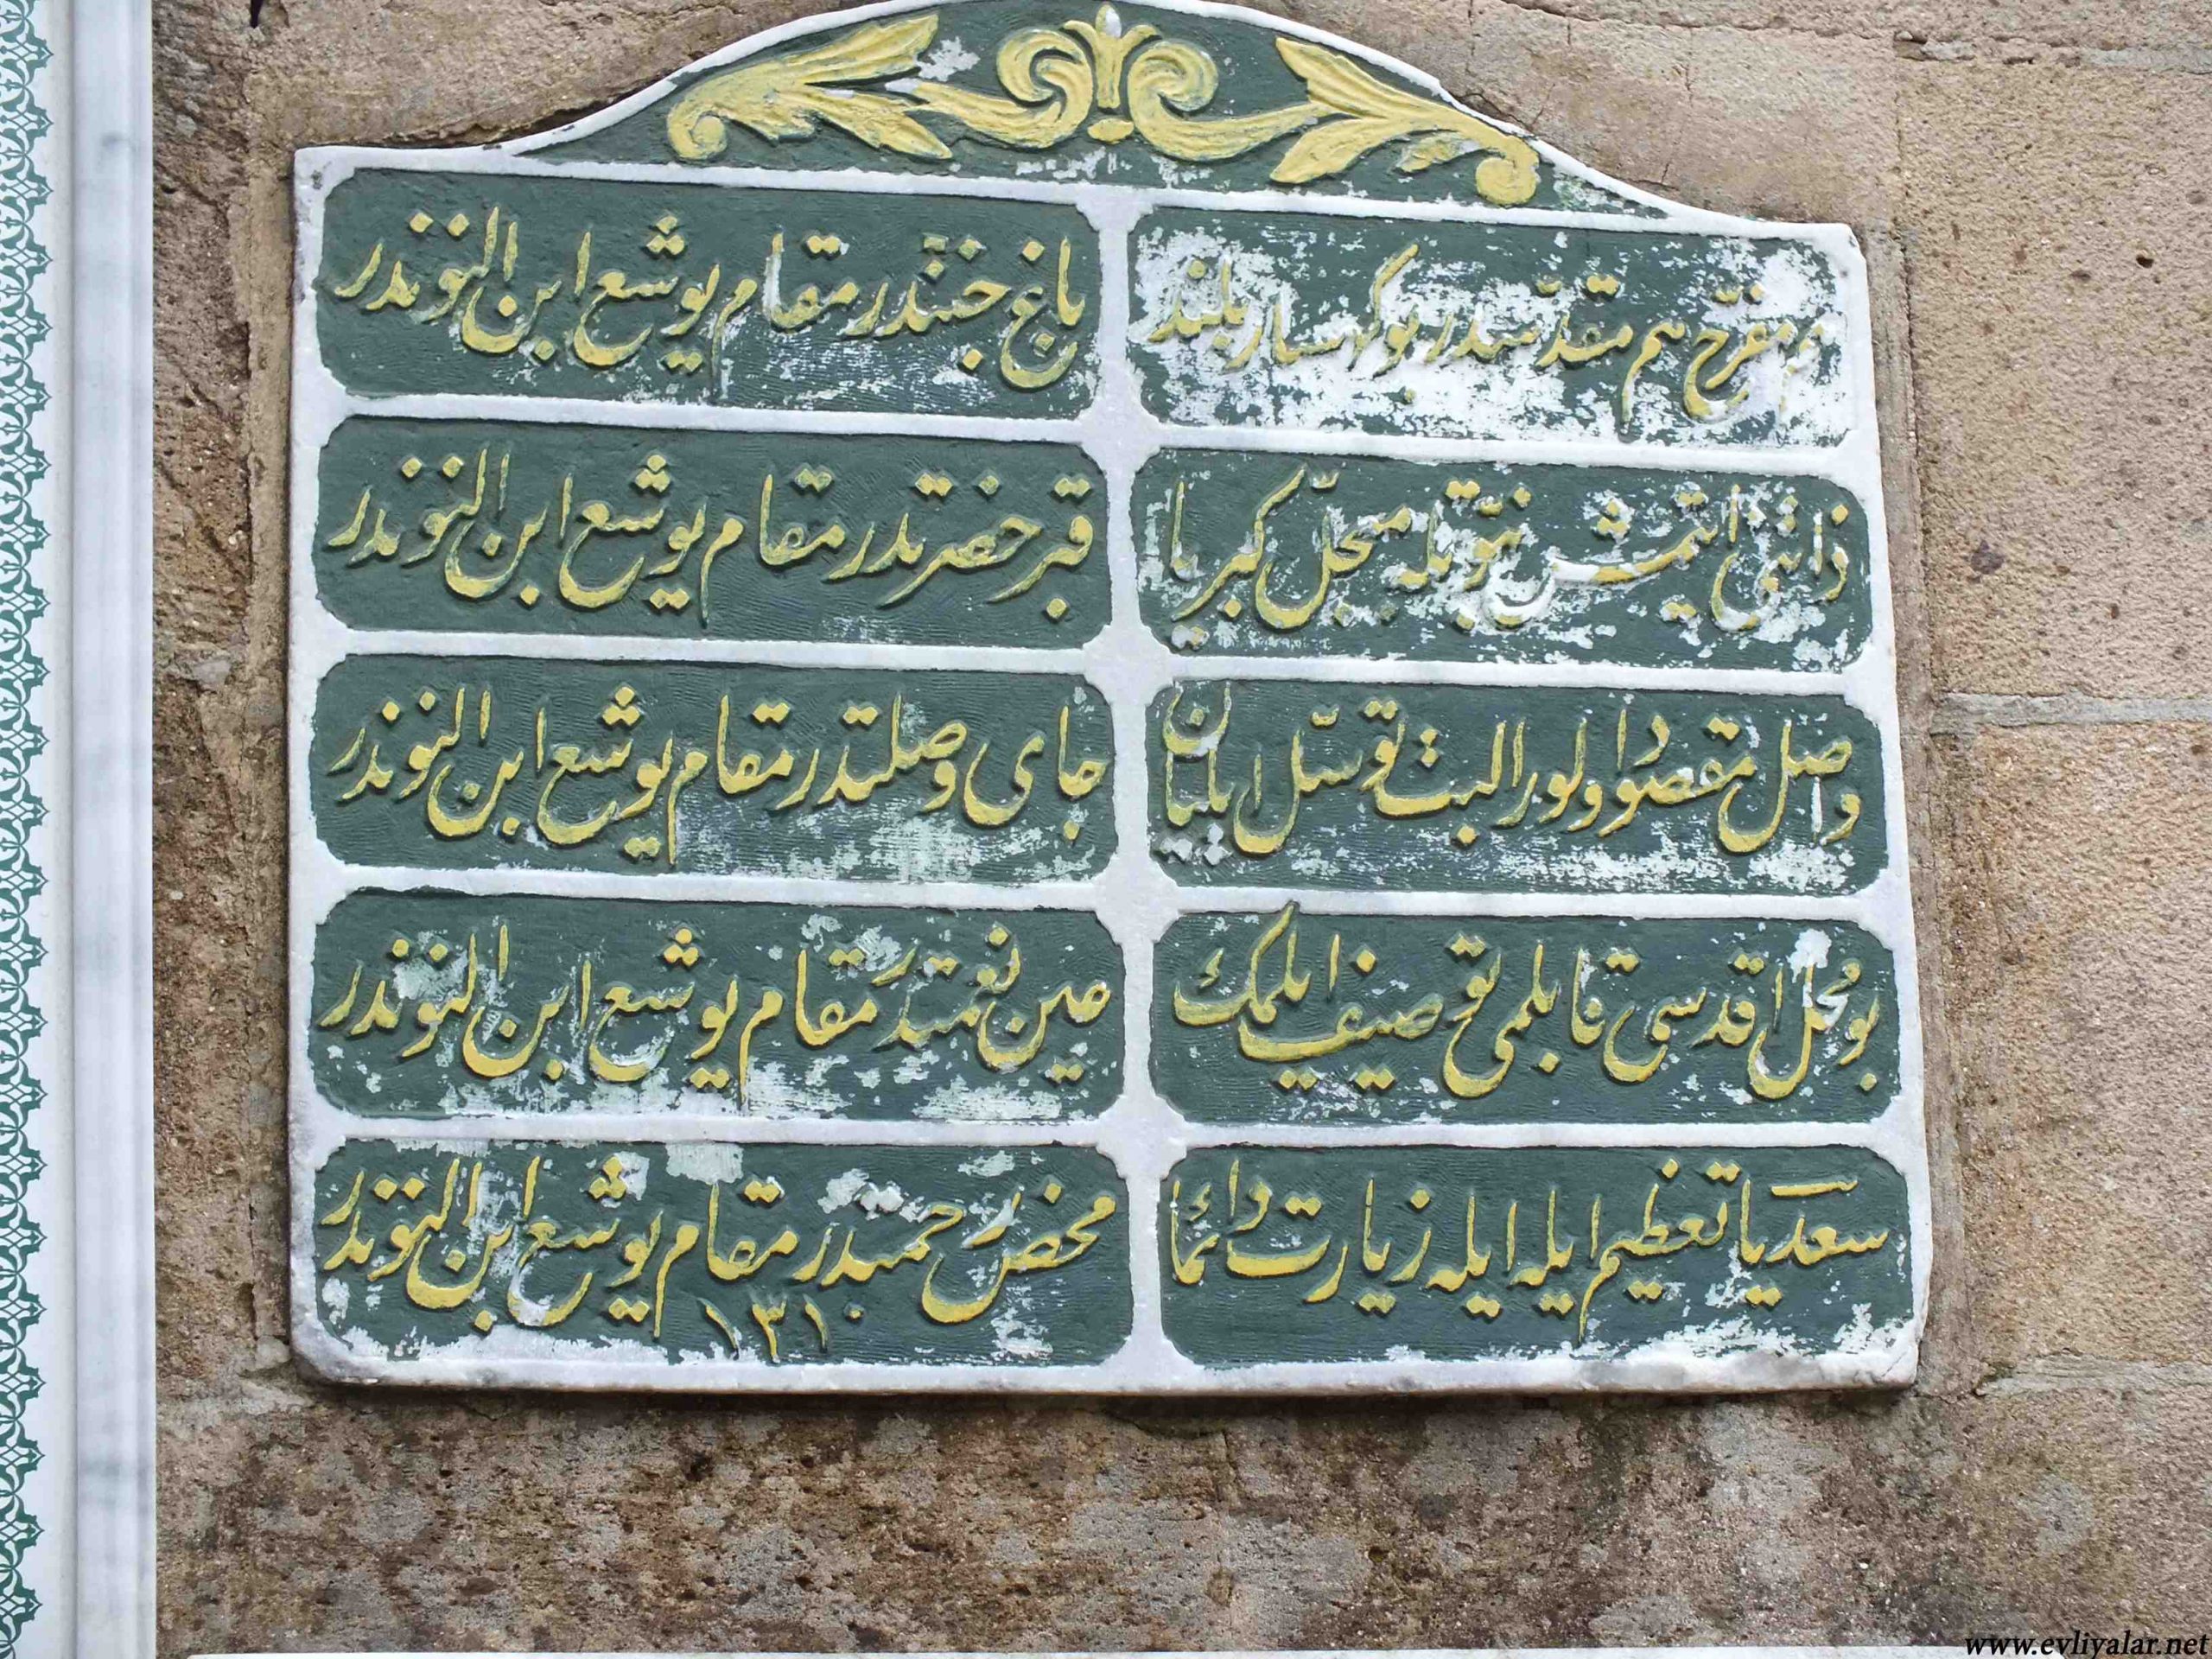 هم مفرّح هم مقدّسدر بو کهسار بلند
باغ جنتدر مقام یوشع ابن النوندر
ذاتنی ایتمش نبوتله مبجّل کبریا
قبر حضرتدر مقام یوشع ابن النوندر
واصل مقصود اولور البت توسّل ایلیان
جای وصلتدر مقام یوشع ابن النوندر
بو محل اقدسی قابلمی توصیف ایلمک
عین نعمتدر مقام یوشع ابن النوندر
سعدیا تعظیم ایله ایله زیارت دائما
محض رحمتدر مقام یوشع ابن النوندر
١٣١٠
www.evliyalar.net